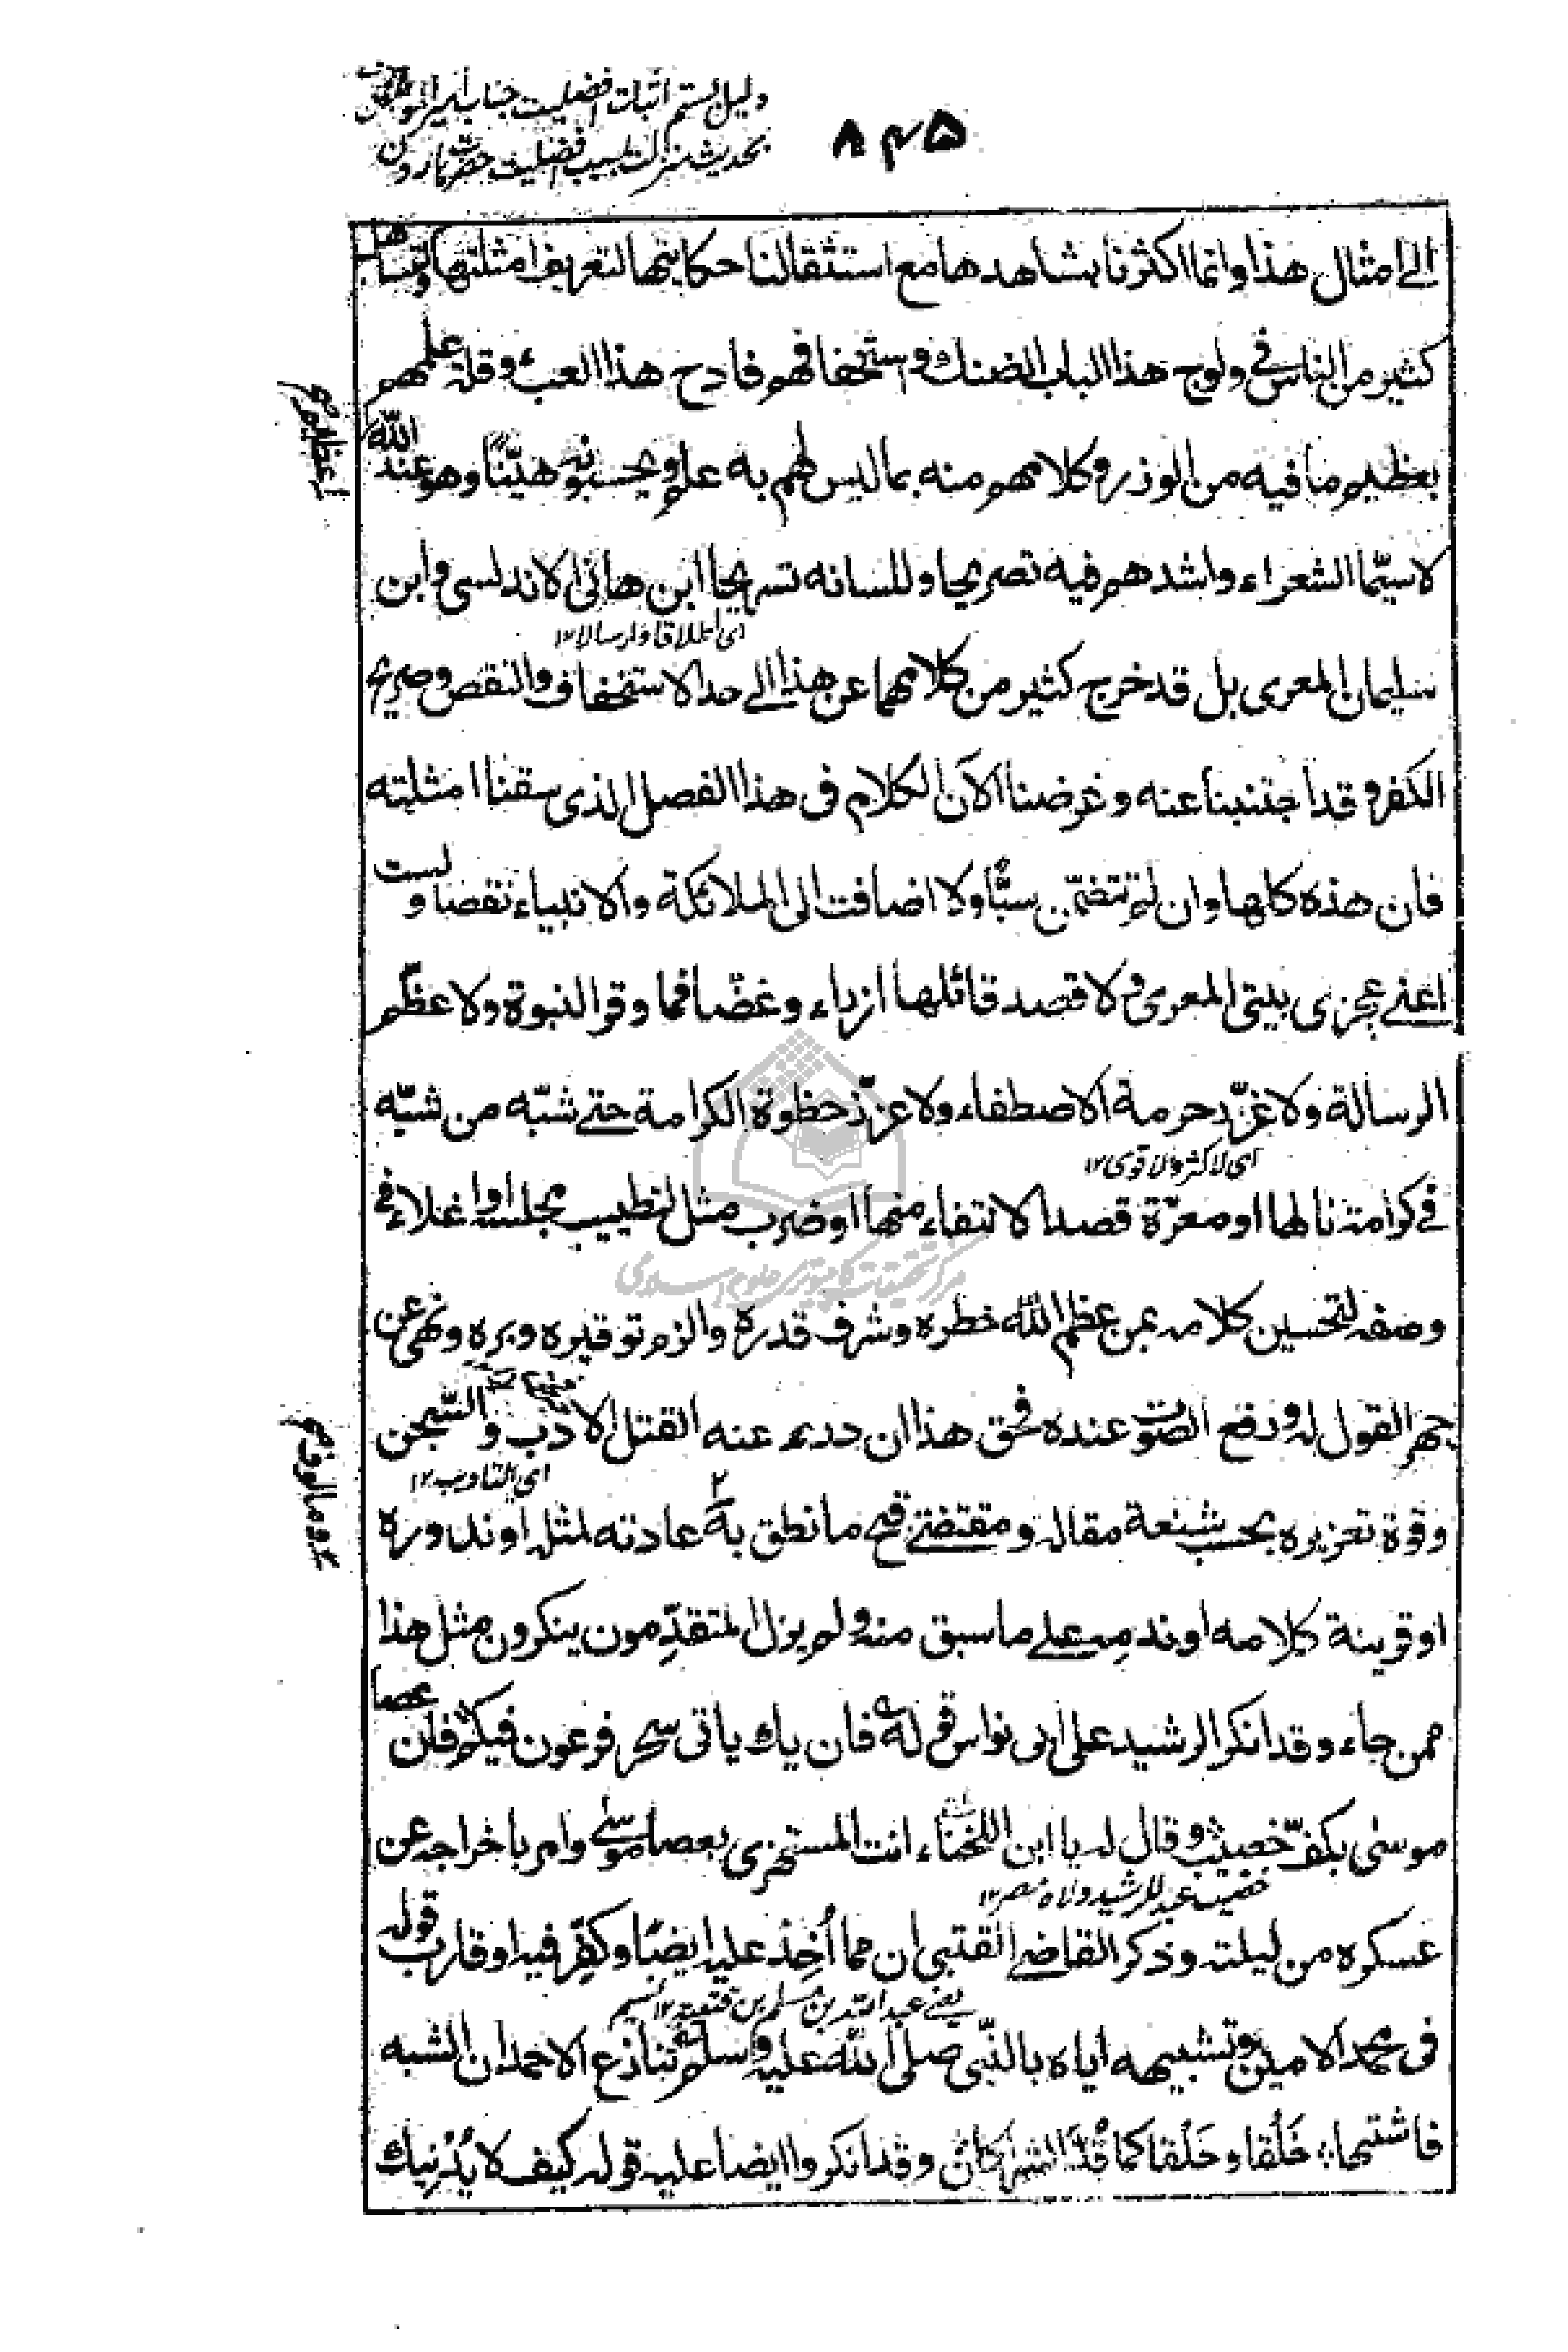 دلیل بستم اثبات افضلیت جناب امیر المؤمنین
بحدیث منزلت بسبب افضلیت حضرت هارون
۸۴۵
الی امثال هذا وانما اکثرنا بشاهدها مع استثقالنا حکایتها لتعریف امثلتها وتساهل
کثیر من الناس فی ولوج هذا الباب الضنك واستخفافهم فادح هذا العبء وقلة علمهم
بعظیم ما فیه من الوزر وکلامهم منه بما لیس لهم به علم ویحسبونه هیّنًا وهو عند الله
عظیم
لا سیّما الشعراء واشدهم فیه تصریحا وللسانه تسریحا ابن هانی الاندلسی وابن
ای اطلاقا وارسالا ۱۲
سلیمان المعری بل قد خرج کثیر من کلامهما عن هذا الی حد الاستخفاف والنقص وصریح
الکفر وقد اجتنبنا عنه وغرضنا الآن الکلام فی هذا الفصل الذی سقنا امثلته
فان هذه کلها وان لم تتضمّن سبًّا ولا اضافت الی الملائکة والانبیاء نقصا ولست
اعنی عجزی بیتی المعری ولا قصد قائلها ازراء وغضّا فما وقر النبوة ولا عظّم
الرسالة ولا غزّر حرمة الاصطفاء ولا عزّز حظوة الکرامة حتی شبّه من شبّه
ای لا کثر ولا قوی ۱۲
فی کرامة نالها او معرّة قصد الانتفاء منها او ضرب مثل لتطییب مجلسه او اغلاء فی
وصف لتحسین کلامه بمن عظم الله خطره وشرف قدره والزم توقیره وبره ونهی عن
جهر القول له ورفع الصوت عنده فحق هذا ان درء عنه القتل الادب والسّجن
ای التادیب ۱۲
وقوة تعزیره بحسب شنعة مقاله ومقتضی قبح ما نطق به ۲ عادته لمثله او ندوره
او قرینة کلامه او ندمه علی ما سبق منه ولم یزل المتقدّمون ینکرون مثل هذا
ممن جاء وقد انکر الرشید علی ابی نواس قوله فان یك یاتی سحر فرعون فیکم فان عصا
موسی بکفّ خصیب وقال له یا ابن اللخناء انت المستهزی بعصا موسی وامر باخراجه عن
خصیب عبد للرشید ولاه مصر ۱۲
عسکره من لیلته وذکر القاضی القتبی ان مما اُخِذ علیه ایضًا وکفّر فیه او قارب قوله
یعنی عبد الله بن مسلم بن قتیبة ۱۲ نسیم
فی محمد الامین وتشبیهه ایاه بالنّبی صلی الله علیه وسلم تنازع الاحمدان الشبه
فاشتبها خَلقا وخُلقا کما قُدّ الشراکان وقد انکروا ایضا علیه قوله کیف لا یُدنیك